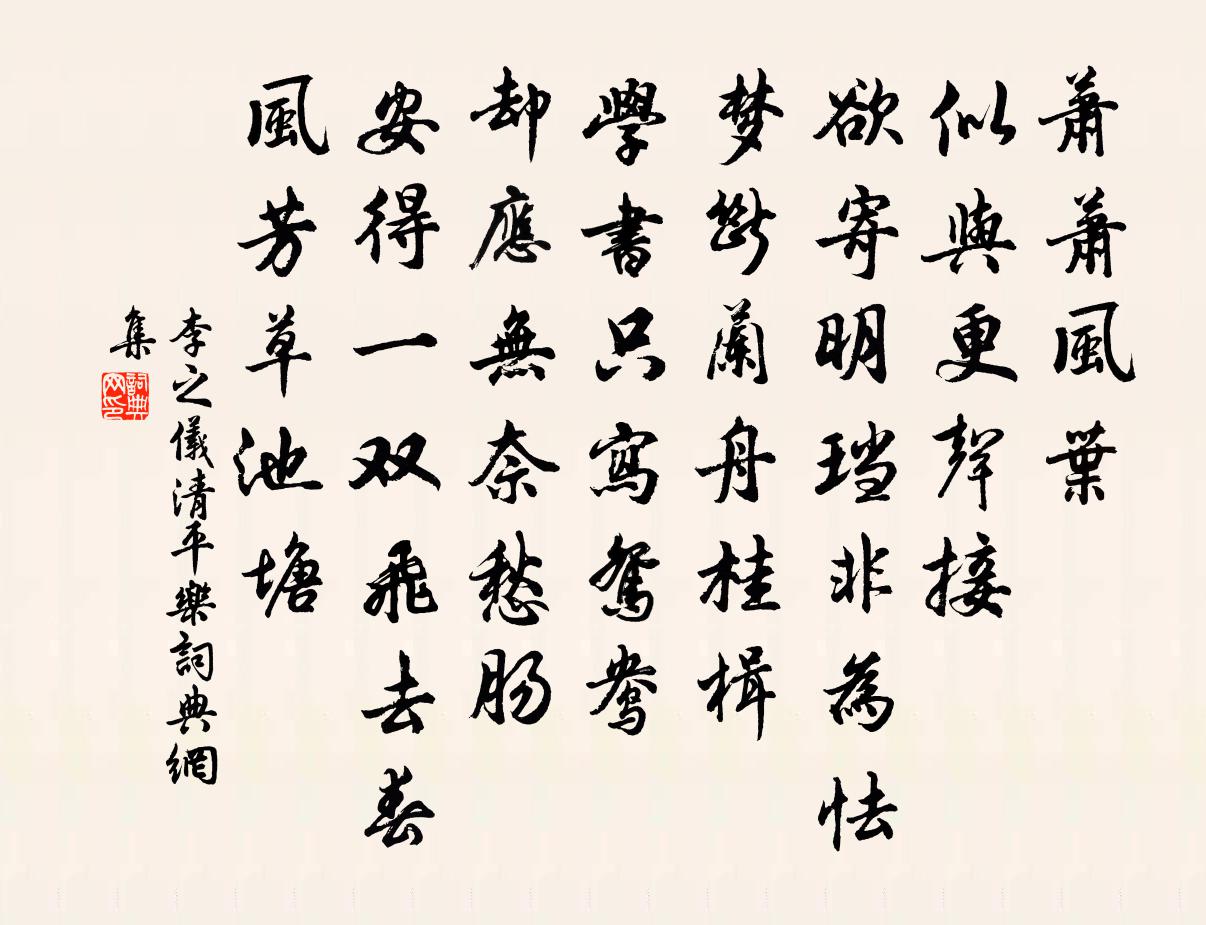 蕭蕭風葉
似與更聲接
欲寄明璫非為怯
梦斷蘭舟桂楫
學書只寫鴛鴦
却應無奈愁腸
安得一双飛去春
風芳草池塘
李之儀清平樂詞典網
集
詞典网印